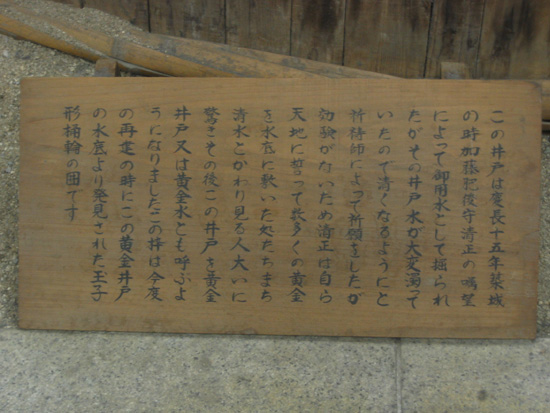 この井戸は慶長十五年築城
の時加藤肥後守清正の鳴望
によって御用水として掘られ
たがその井戸水が大変濁って
いたので清くなるようにと
祈祷師によって祈願をしたが
効験がないため清正は自ら
天地に誓って数多くの黄金
を水底に敷いた処たちまち
清水とかわり見る人大いに
驚きその後この井戸を黄金
井戸又は黄金水とも呼ぶよ
うになりましたこの枠は今度
の再建の時にこの黄金井戸
の水底より発見された玉子
形桶輪の囲です